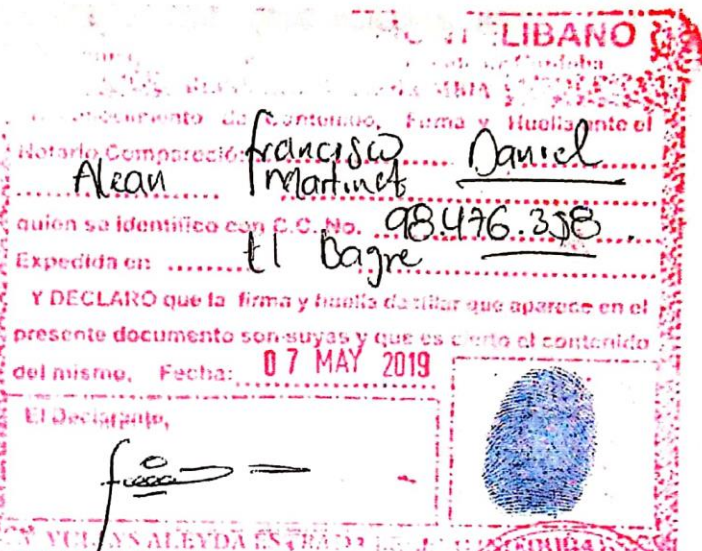 LIBANO
Contenido, Firma y Huella ante el
Notario Compareció: Francisco Daniel
Alean Martinez
quien se identifico con C.C. No. 98.476.358.
Expedida en El Bagre
Y DECLARO que la firma y huella dactilar que aparece en el
presente documento son suyas y que es cierto el contenido
del mismo. Fecha: 07 MAY 2019
El Declarante,